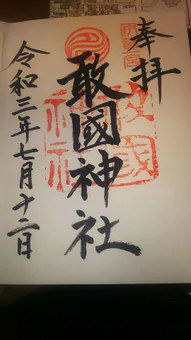 奉拝
敢國神社
令和三年七月十二日